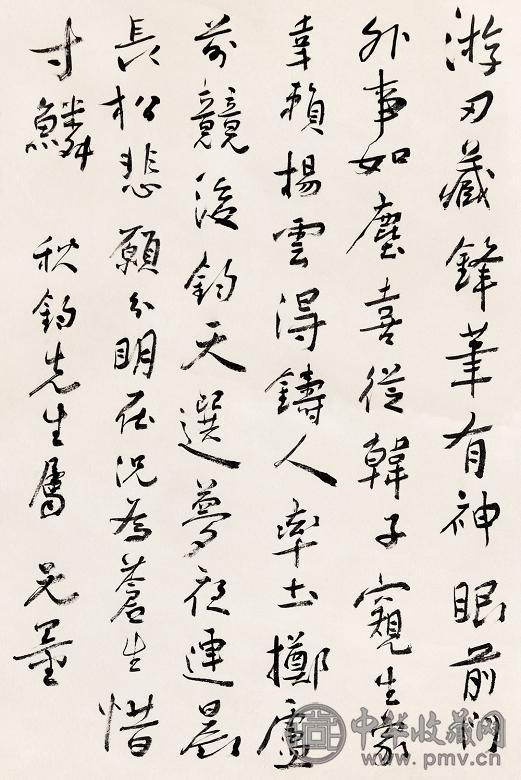 游刃藏鋒筆有神眼前門
外事如塵喜從韓子窺生
幸賴揚雲得鑄人率土擲盧
競鈞天選夢夜連晨
長松悲願分明在況為蒼生惜
寸鱗 秋鈞先生屬 墨
中华收藏网
www.pmv.cn